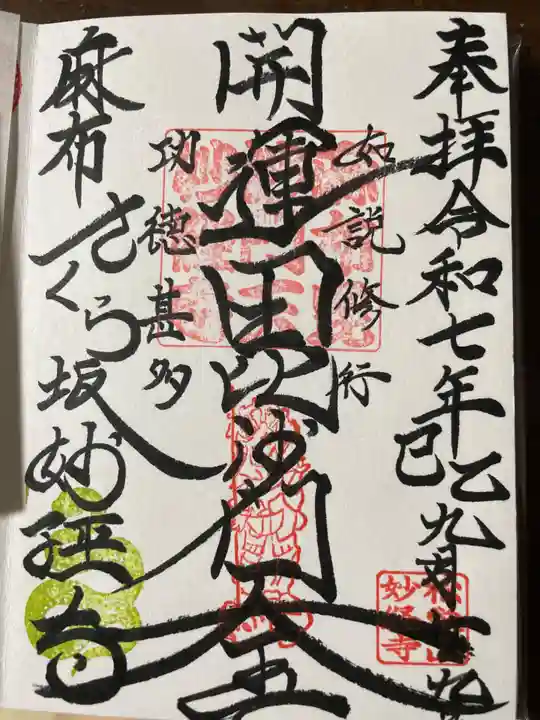 奉拝令和七年乙巳九月廿九
如説修行
開運毘沙門天王
功徳甚多
麻布さくら坂妙経寺
妙経寺